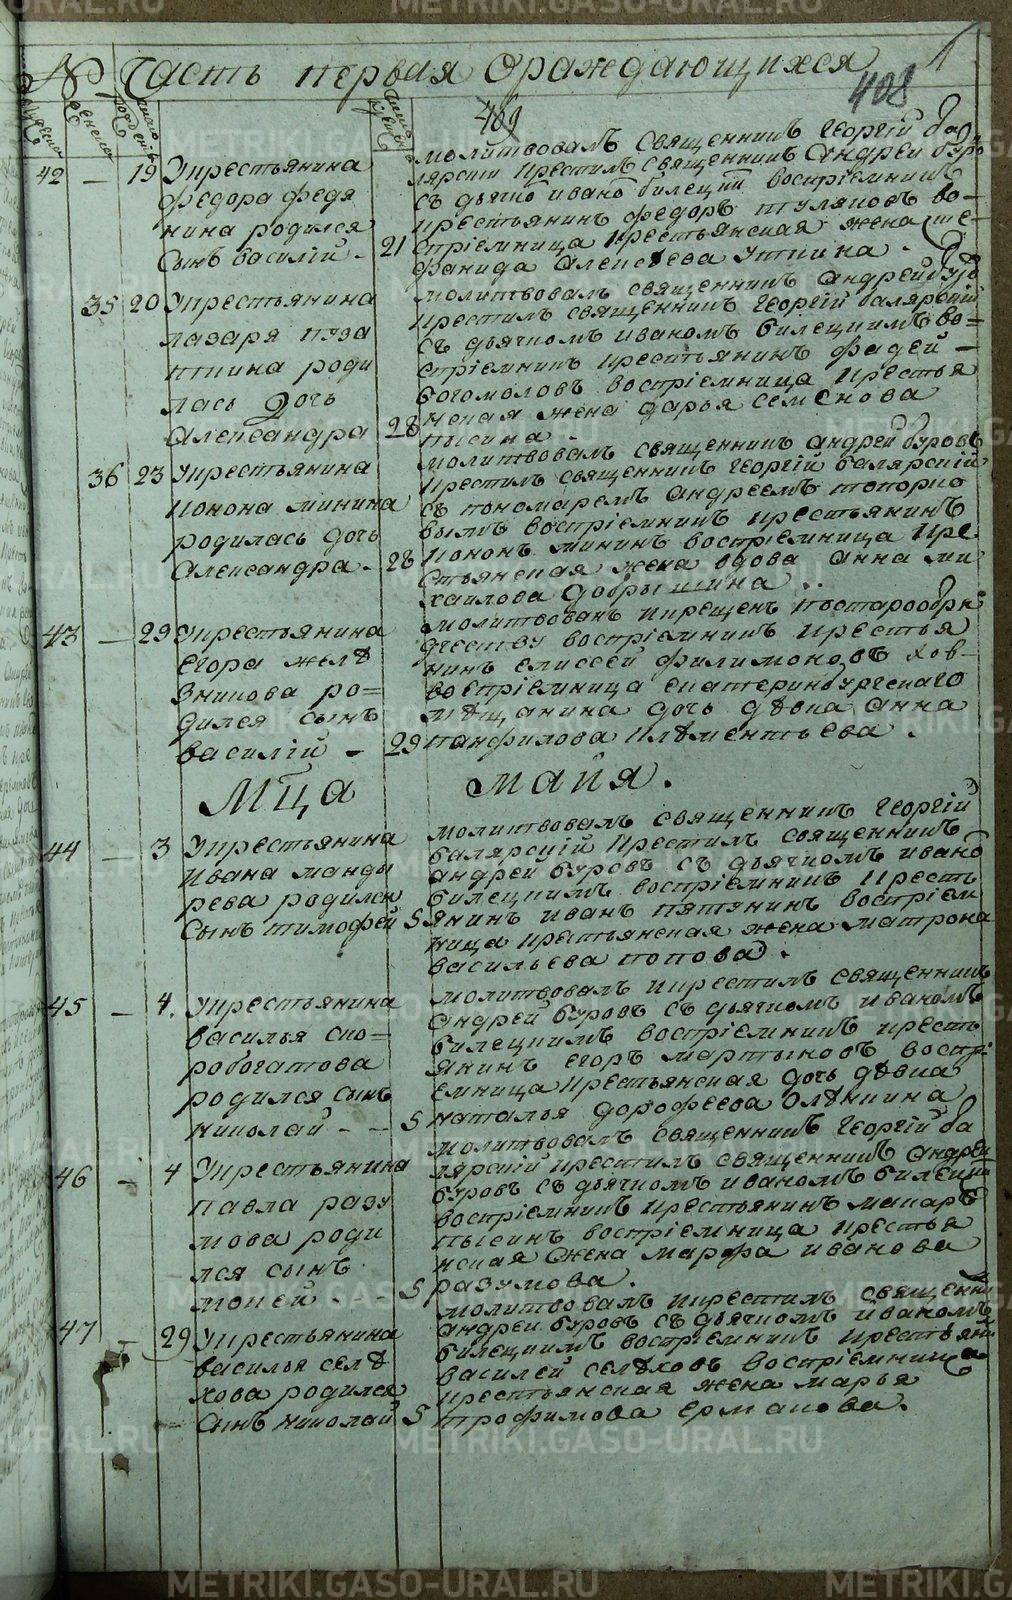 № Часть первая ораждающихся
408
469
42 — 19 Укрестьянина
Федора Федя
нина родился
Сынъ Василий - 21
молитвовалъ священникъ Георгій бал
лярскій крестилъ священникъ Андрей буро
съ дьячко Ивано билецкий воспріемникъ
крестьянинъ Федоръ Туляковъ во-
спріемница крестьянская жена сте-
фанида Алексѣева Уткина.
35 20 Укрестьянина
лазаря пуза
нкина роди
лась дочь
Александра 28
молитвовалъ священникъ Андрей буро
крестилъ священникъ Георгій балярскій
съ дьячкомъ иваномъ билецкимъ во=
спріемникъ крестьянинъ Фадей -
богомоловъ воспріемница крестья
нская жена дарья семенова
кысина -
36 23 укрестьянина
Конона минина
родилась дочь
Александра - 28
молитвовалъ священникъ андрей буровъ
крестилъ священникъ Георгій балярскій
съ пономаремъ андреемъ топорко
вымъ воспріемникъ крестьянинъ
Кононъ мининъ воспріемница кре
стьянская жена вдова Анна ми
хаилова добрышина ..
43 — 29 укрестьянина
Егора желѣ
зникова ро=
дился сынъ
василій - 29
молитвованъ икрещенъ постарообря
дчеству воспріемникъ крестья
нинъ елисей филимоновъ хов-
воспріемница екатеринбургскаго
мѣщанина дочь дѣвка Анна
панфилова клѣментьева
Мца майя.
44 — 3 Укрестьянина
ивана манды
рева родился
Сынъ тимофей 5
молитвовалъ священникъ Георгій
балярскій крестилъ священникъ
андрей буровъ съ дьячкомъ ивано
билецкимъ воспріемникъ кресть
янинъ иванъ пятунинъ воспріем
ница крестьянская жена матрона
васильева попова.
45 — 4. укрестьянина
василья ско-
робогатова
родился сынъ
николай - - 5
молитвовалъ икрестилъ священникъ
андрей буровъ съ дьячкомъ иваномъ
билецкимъ воспріемникъ кресть
янинъ егоръ мартыновъ воспрі
емница крестьянская дочь дѣвка
наталья дорофеева олѣнкина
46 - 4 Укрестьянина
павла разу
мова роди
лся сынъ
мокей - - 5
молитвовалъ священникъ Георгій ба
лярскій крестилъ священникъ Андрей
буровъ съ дьячкомъ иваномъ билецки
воспріемникъ крестьянинъ макаръ
кысинъ воспріемница крестья
нская жена марфа иванова
разумова.
47 - 29 укрестьянина
василья селѣ
хова родился
Сынъ николай 5
молитвовалъ икрестилъ священни
андрей буровъ съ дьячкомъ иваномъ
билецкимъ воспріемникъ крестьяни
василей селѣховъ воспріемница
крестьянская жена марья
трофимова ермакова.
METRIKI.GASO-URAL.RU